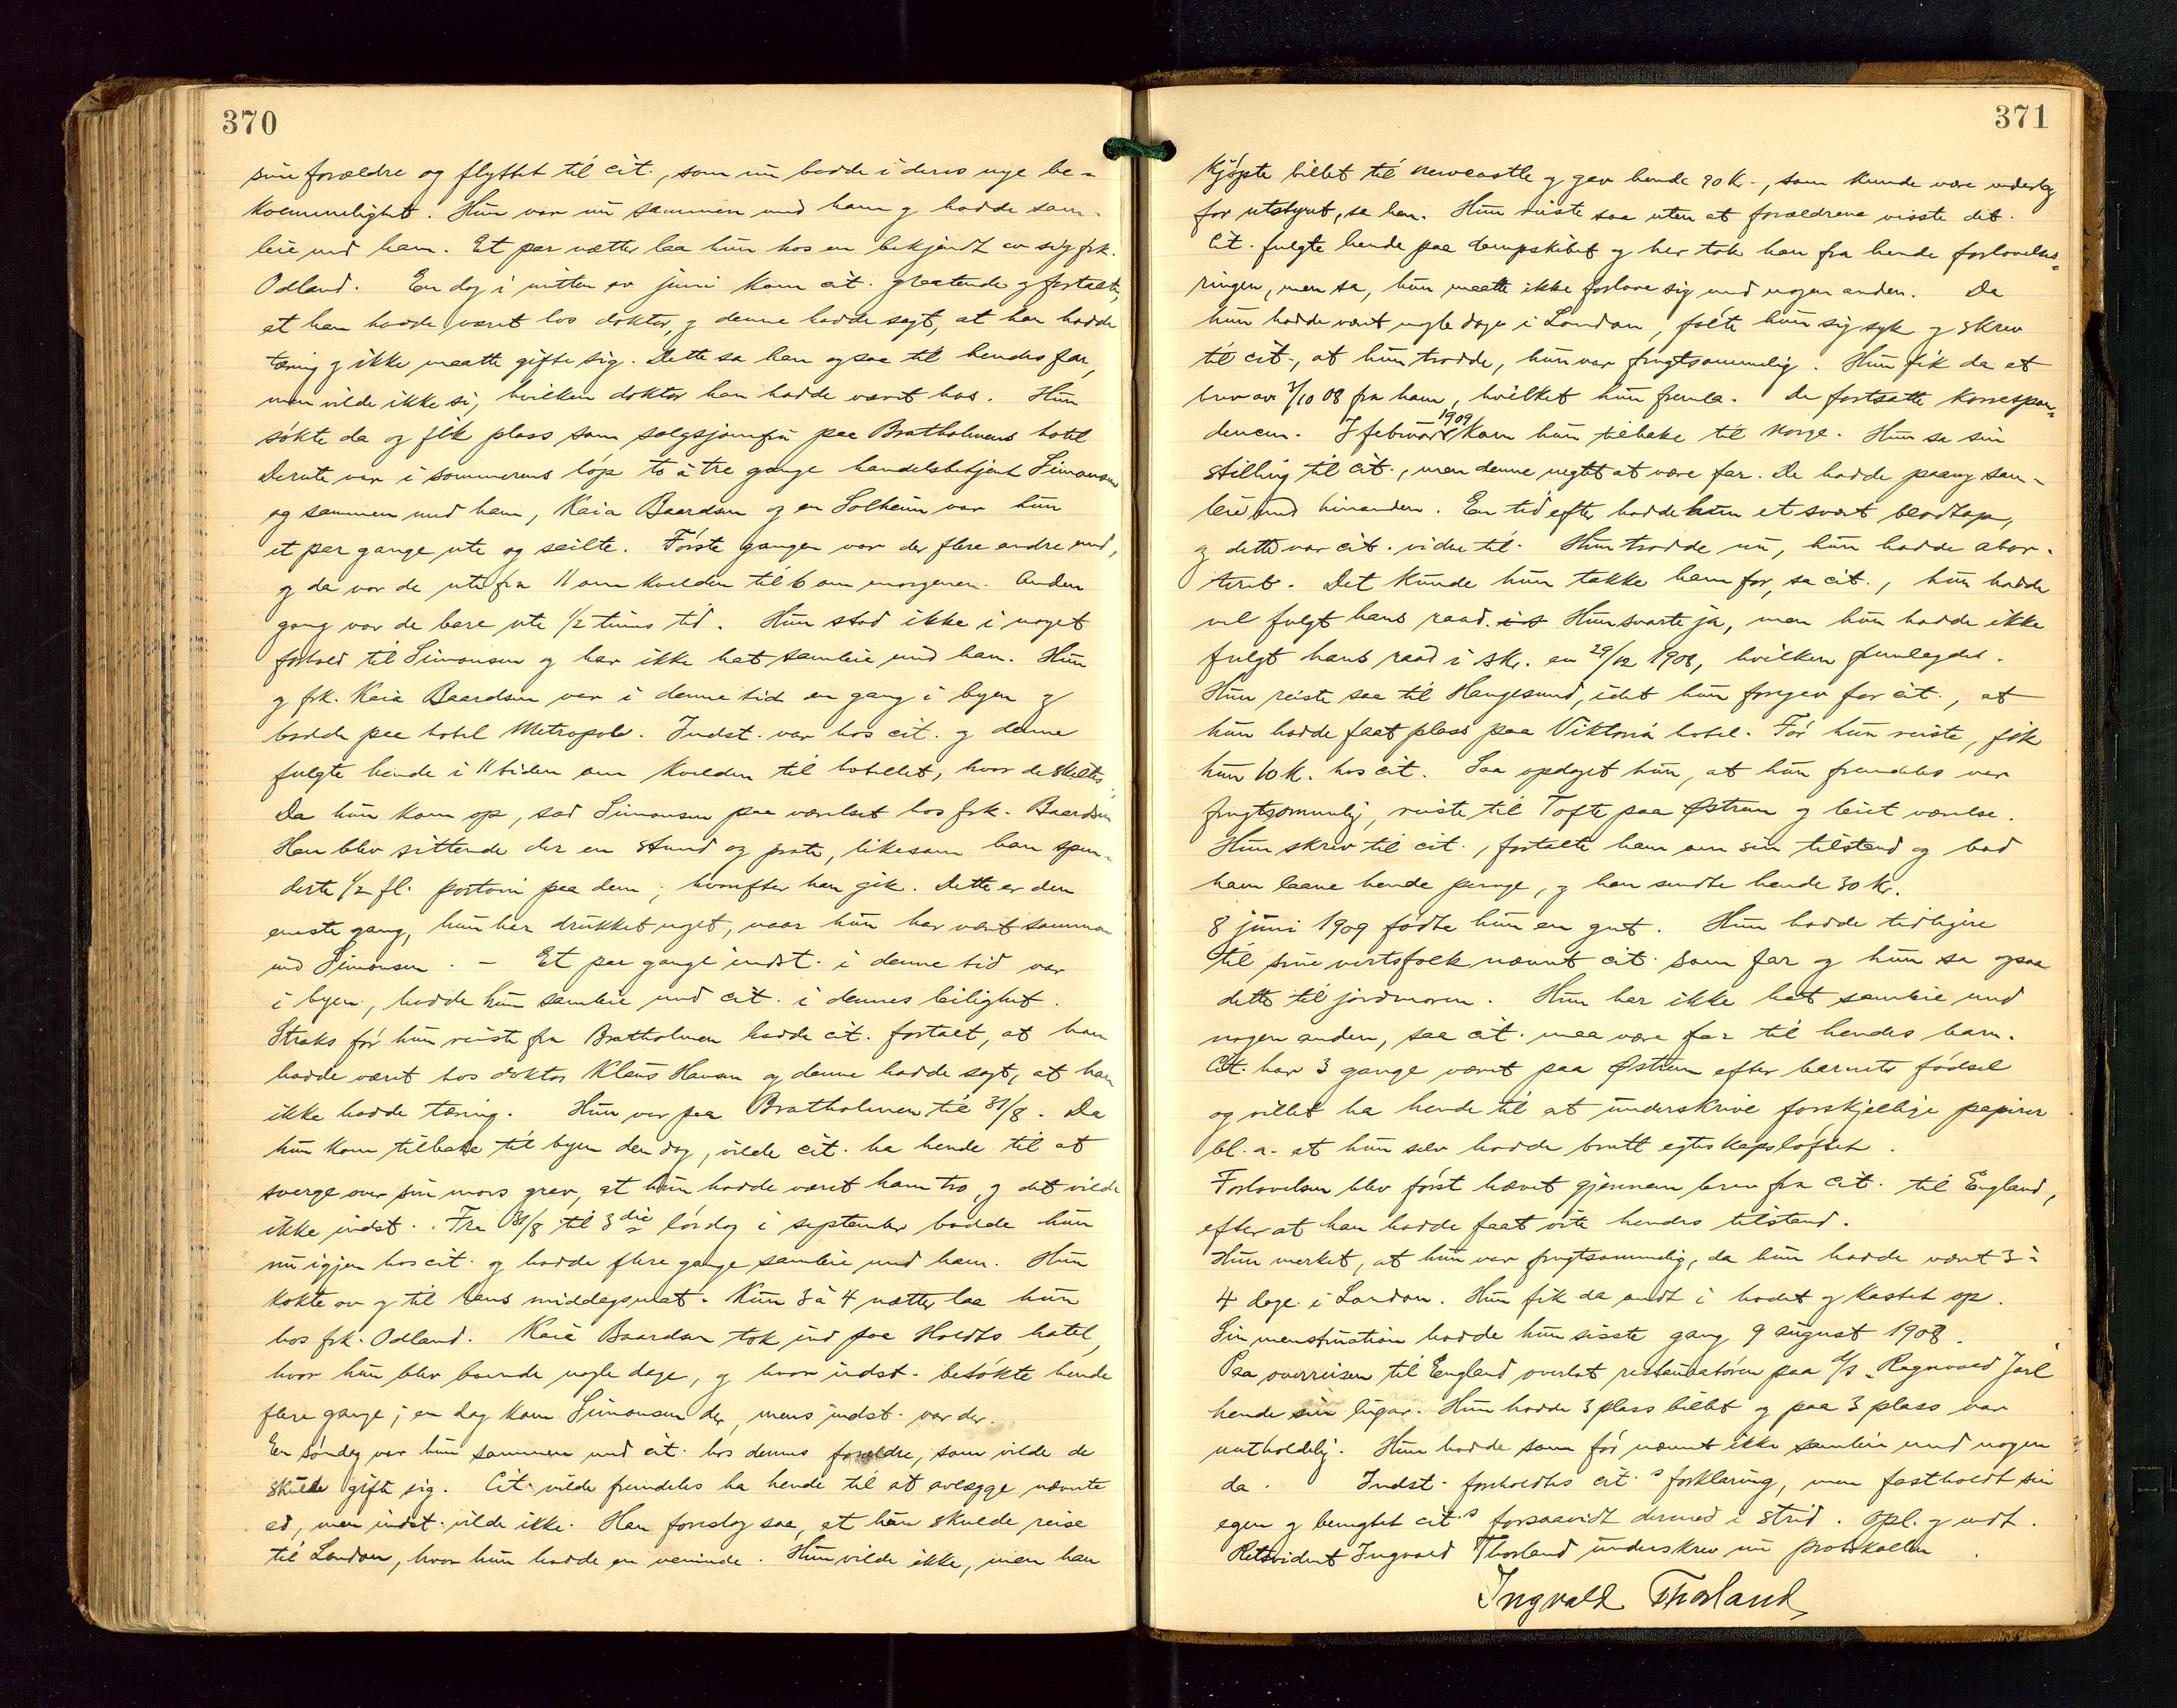 370
sine forældre og flyttet til cit., som nu bodde i deres nye be-
kvemmelighet. Hun var nu sammen med ham og hadde sam-
leie med ham. Et par nætter laa hun hos en bekjendt av sig frk.
Odland. En dag i mitten av juni kom cit. graatende og fortalte,
at han hadde været hos doktor, og denne hadde sagt, at han hadde
tæring og ikke maatte gifte sig. Dette sa han ogsaa til hendes far,
men vilde ikke si, hvilken doktor han hadde været hos. Hun
søkte da og fik plass som salgsjomfru paa Bratholmens hotel
Derute var i sommerens løp to à tre gange handelsbetjent Simonsen
og sammen med ham, Kaia Baardsen og en Solheim var hun
et par gange ute og seilte. Første gangen var der flere andre med,
og da var de ute fra 11 om kvelden til 6 om morgenen. Anden
gang var de bare ute 1/2 times tid. Hun stod ikke i noget
forhold til Simonsen og har ikke hat samleie med han. Hun
og frk. Kaia Baardsen var i denne tid en gang i byen og
bodde paa hotel Metropole. Indst. var hos cit. og denne
fulgte hende i 11 tiden om kvelden til hotellet, hvor de skiltes.
Da hun kom op, sad Simonsen paa værelset hos frk. Baardsen
Han blev sittende der en stund og prate, likesom han spen-
derte 1/2 fl. portvin paa dem, hvorefter han gik. Dette er den
eneste gang, hun har drukket noget, naar hun har været sammen
med Simonsen. - Et par gange indst. i denne tid var
i byen, hadde hun samleie med cit. i dennes leilighet.
Straks før hun reiste fra Bratholmen hadde cit. fortalt, at han
hadde været hos doktor Klaus Hansen og denne hadde sagt, at han
ikke hadde tæring. Hun var paa Bratholmen til 31/8. Da
hun kom tilbake til byen den dag, vilde cit. ha hende til at
sverge over sin mors grav, at hun hadde været ham tro, og det vilde
ikke indst. Fra 31/8 til 3die lørdag i september bodde hun
nu igjen hos cit. og hadde flere gange samleie med ham. Hun
kokte av og til hans middagsmat. Kun 3 à 4 nætter laa hun
hos frk. Odland. Kaia Baardsen tok ind paa Holdts hotel,
hvor hun blev boende nogle dage, og hvor indst. besøkte hende
flere gange; en dag kom Simonsen der, mens indst. var der.
En søndag var hun sammen med cit. hos dennes forældre, som vilde de
skulde gifte sig. Cit. vilde fremdeles ha hende til at avlægge nævnte
ed, men indst. vilde ikke. Han foreslog saa, at hun skulde reise
til London, hvor hun hadde en veninde. Hun vilde ikke, men han
371
kjøpte billet til Newcastle og gav hende 90 kr., som kunde være
for utstyret, sa han. Hun reiste saa uten at forældrene visste det.
Cit. fulgte hende paa dampskibet og her tok han fra hende forlovelses-
ringen, men sa, hun maatte ikke forlove sig med nogen anden. Da
hun hadde været nogle dage i London, følte hun sig syk og skrev
til cit., at hun trodde, hun var frugtsommelig. Hun fik da et
brev av 3/10 08 fra ham, hvilket hun fremla. De fortsatte korrespon-
dencen. I februar 1909 kom hun tilbake til Norge. Hun sa sin
stilling til cit., men denne negtet at være far. De hadde paany sam-
leie med hinanden. En tid efter hadde hun et svært blodtap,
og dette var cit. vidne til. Hun trodde nu, hun hadde abor-
teret. Det kunde hun takke ham for, sa cit., hun hadde
vel fulgt hans raad. Hun svarte ja, men hun hadde ikke
fulgt hans raad i skr. av 29/12 1908, hvilken fremlagdes.
Hun reiste saa til Haugesund, idet hun foregav for cit., at
hun hadde faat plass paa Viktoria hotel. Før hun reiste, fik
hun 10 k. hos cit. Saa opdaget hun, at hun fremdeles var
frugtsommelig, reiste til Tofte paa Østrem og leiet værelse.
Hun skrev til cit., fortalte ham om sin tilstand og bad
ham laane hende penge, og han sendte hende 30 kr.
8 juni 1909 fødte hun en gut. Hun hadde tidligere
til sine vertsfolk nævnt cit. som far og hun sa ogsaa
dette til jordmoren. Hun har ikke hat samleie med
nogen anden, saa cit. maa være far til hendes barn.
Cit. har 3 gange været paa Østrem efter barnets fødsel
og villet ha hende til at underskrive forskjellige papirer
bl. a. at hun selv hadde brutt egteskapsløftet.
Forlovelsen blev først hævet gjennem brev fra cit. til England,
efter at han hadde faat vite hendes tilstand.
Hun merket, at hun var frugtsommelig, da hun hadde været 3 à
4 dage i London. Hun fik da ondt i hodet og kastet op.
Sin menstruation hadde hun sisste gang 9 august 1908.
Paa overreisen til England overlot restauratøren paa d/s "Ragnvald Jarl"
hende sin lugar. Hun hadde 3 plass billet og paa 3 plass var
uutholdelig. Hun hadde som før nævnt ikke samleie med nogen
da. Indst. forholdtes cit.s forklaring, men fastholdt sin
egen og benegtet cit.s forsaavidt dermed i strid. Opl. og vedt.
Retsvidnet Ingvald Thorland underskrev nu protokollen.
Ingvald Thorland